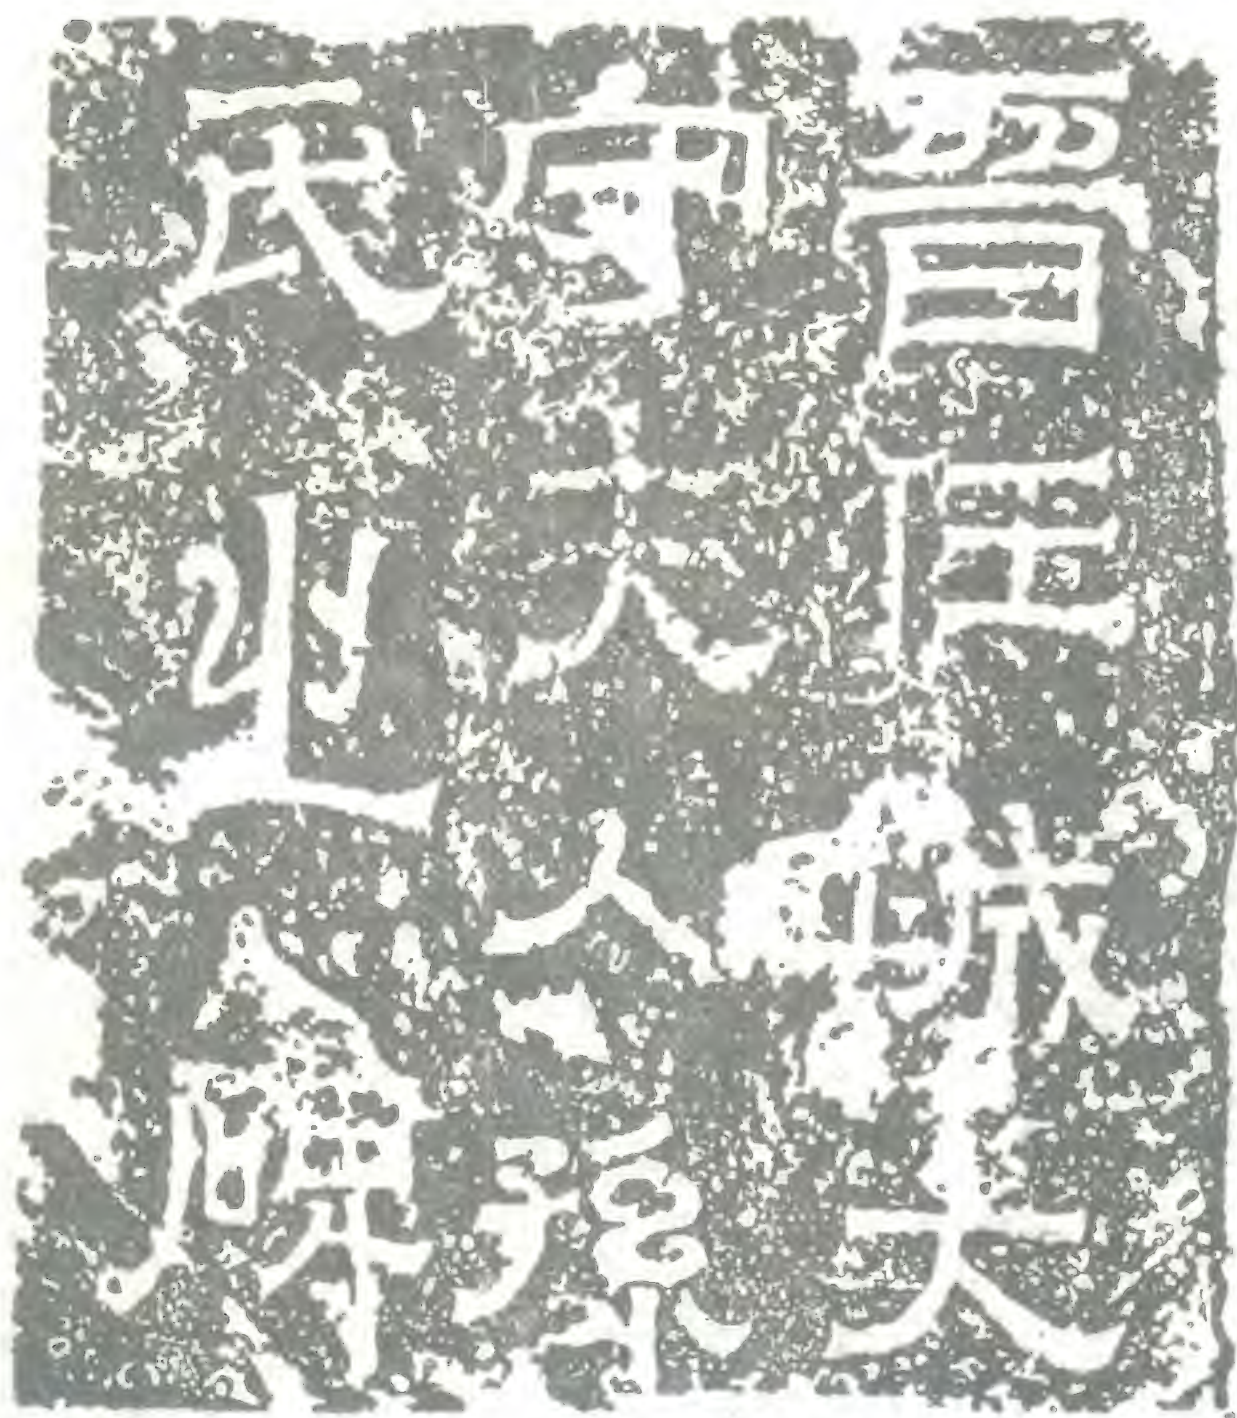 晉任城太
守夫人孫
氏之碑